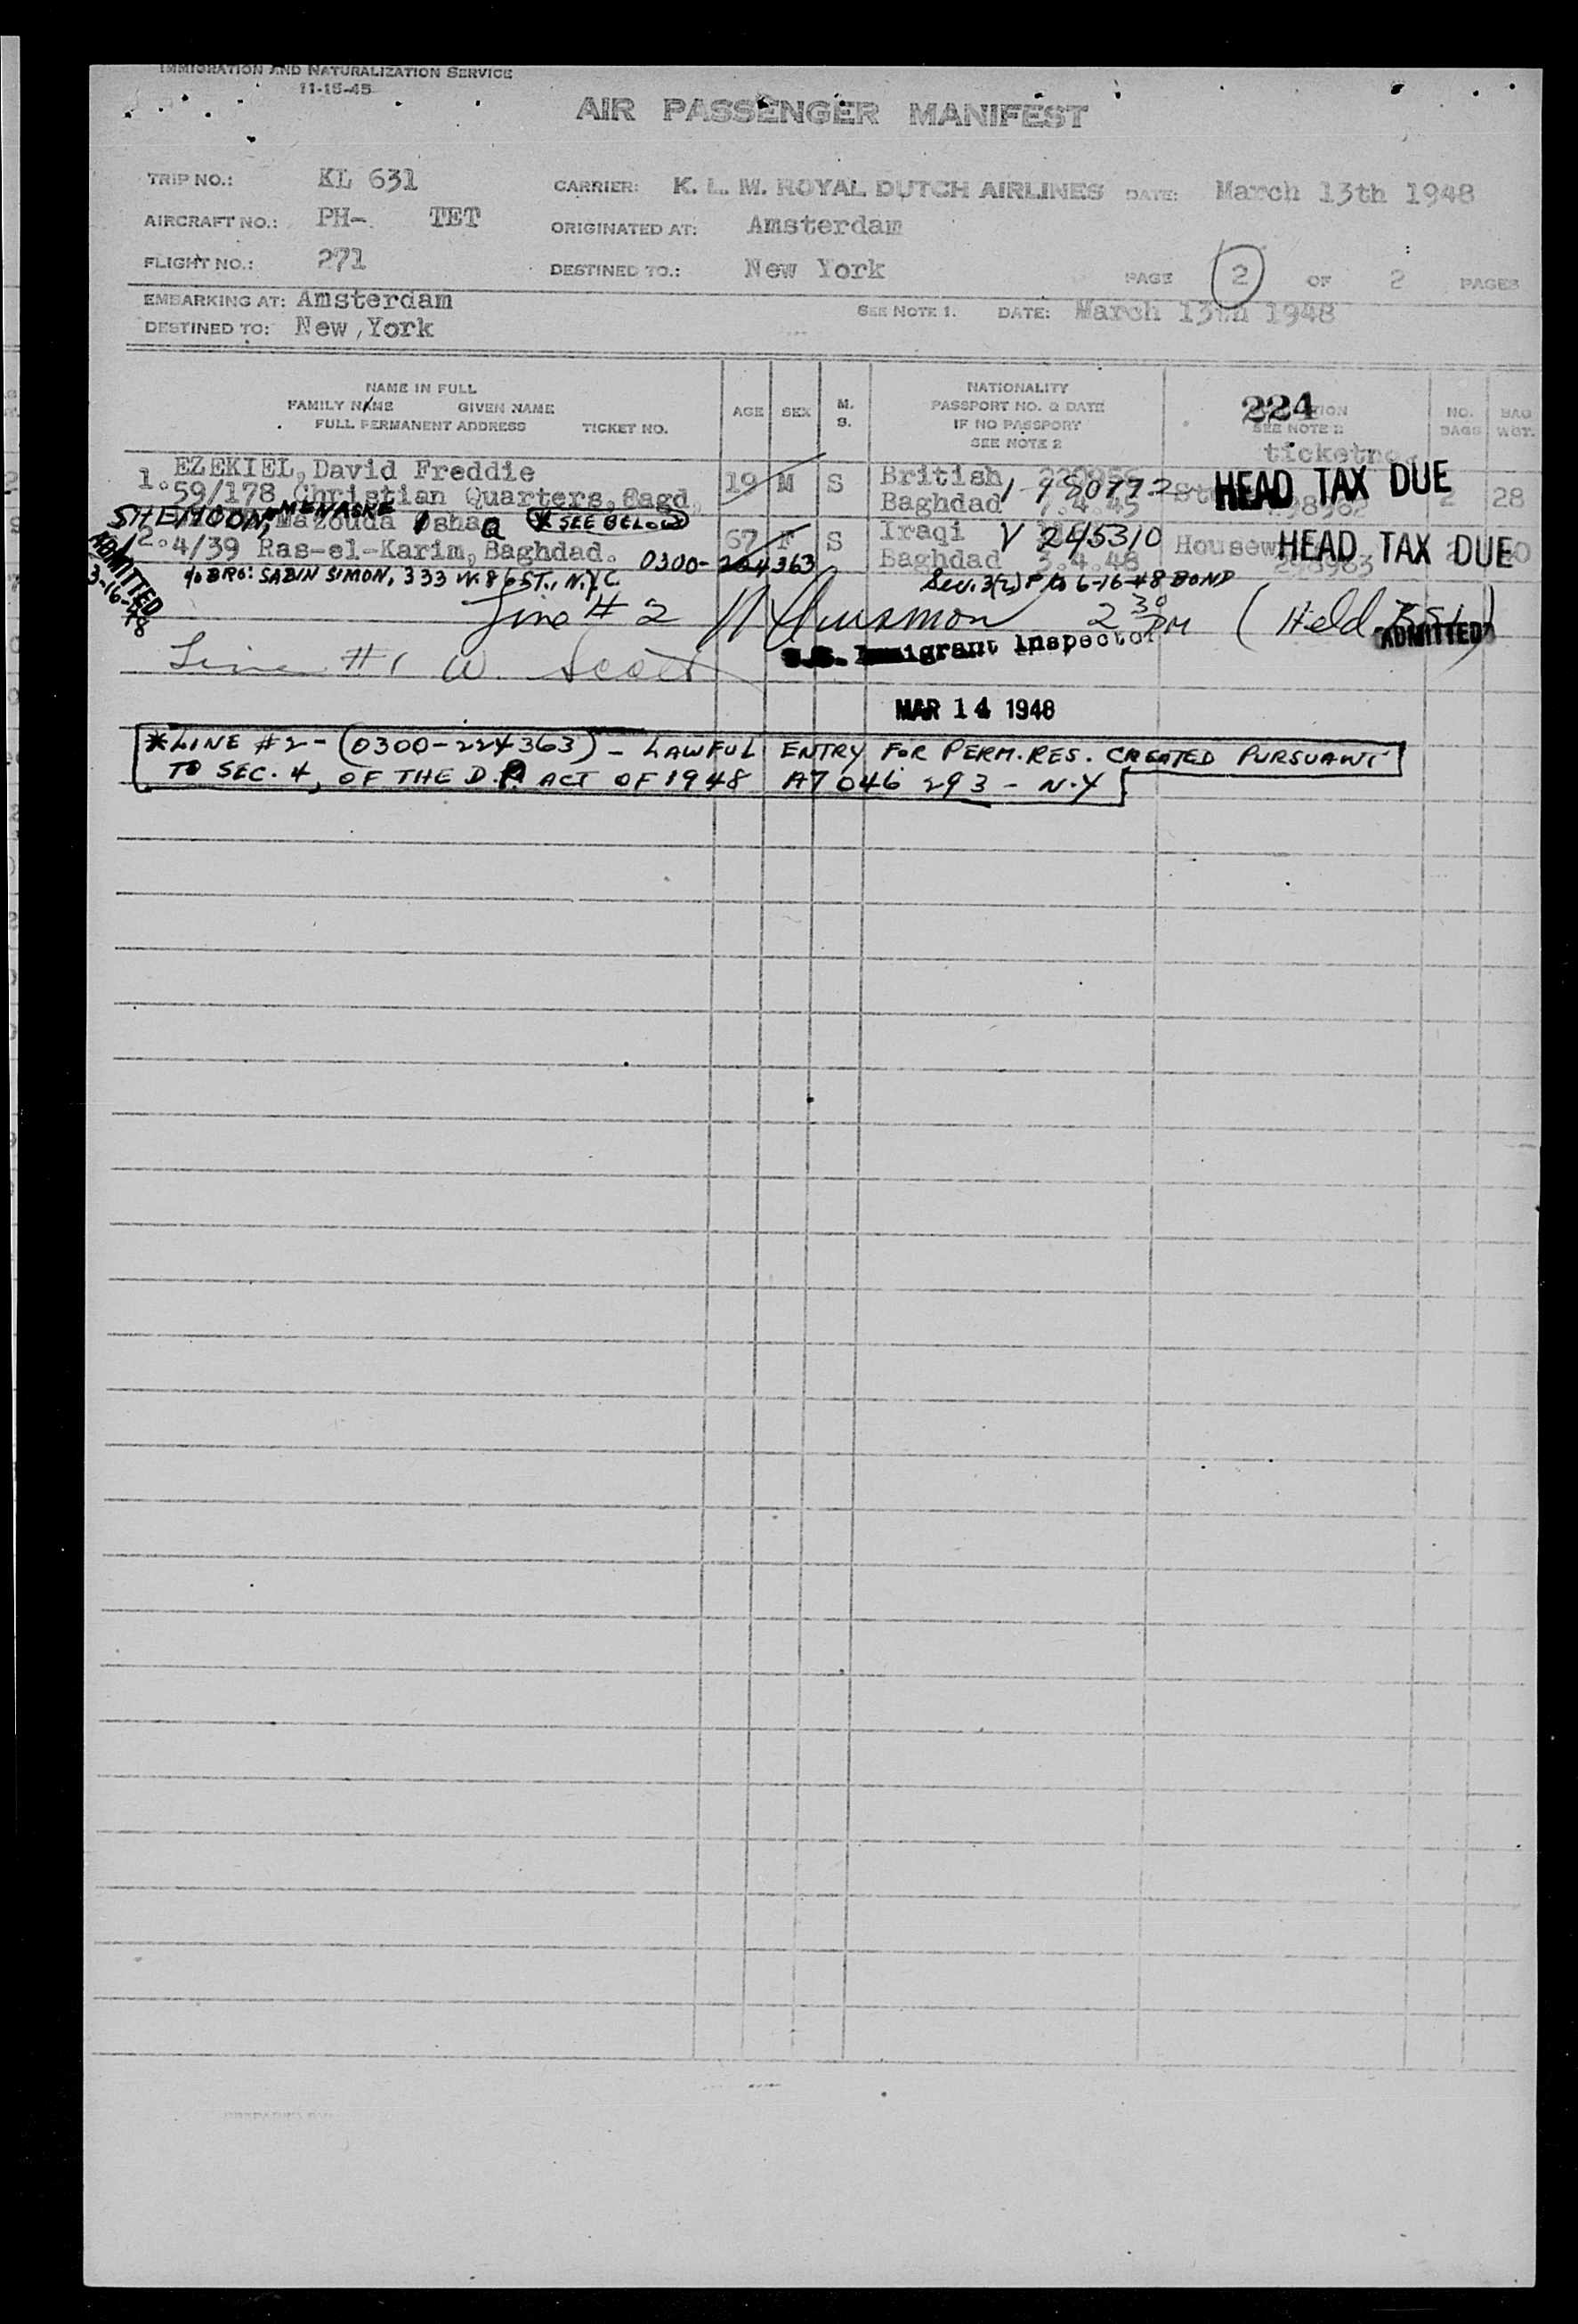 IMMIGRATION AND NATURALIZATION SERVICE
11-15-45
AIR PASSENGER MANIFEST
TRIP NO.: KL 631 CARRIER: K. L. M. ROYAL DUTCH AIRLINES DATE: March 13th 1948
AIRCRAFT NO.: PH- TET ORIGINATED AT: Amsterdam
FLIGHT NO.: 271 DESTINED TO.: New York PAGE 2 OF 2 PAGES
EMBARKING AT: Amsterdam SEE NOTE 1. DATE: March 13th 1948
DESTINED TO: New York
NAME IN FULL
FAMILY NAME GIVEN NAME
FULL PERMANENT ADDRESS TICKET NO.
AGE SEX M. S.
NATIONALITY
PASSPORT NO. & DATE
IF NO PASSPORT
SEE NOTE 2
224
SEE NOTE 2
ticketno.
NO. BAGS
BAG WGT.
1. EZEKIEL, David Freddie 19 M S British HEAD TAX DUE 2 28
59/178 Christian Quarters, Bagd. Baghdad 7.4.45
SHEMOON, MENASHE Mazouda Isha Q * SEE BELOW 67 F S Iraqi V 245310 HEAD TAX DUE
2. 4/39 Ras-el-Karim, Baghdad. 0300-224363 Baghdad 3.4.48 298963
ADMITTED
3-16-48
c/o BRO: SABIN SIMON, 333 W. 86 ST., N.Y.C. 6-16-48 BOND
Line # 2 2 30 PM (Held B.S.I.)
ADMITTED
U.S. Immigrant Inspector
Line #1 W. Scott
MAR 14 1948
*LINE #2 - (0300-224363) - LAWFUL ENTRY FOR PERM. RES. CREATED PURSUANT
TO SEC. 4, OF THE D.P. ACT OF 1948 A7 046 293 - N.Y